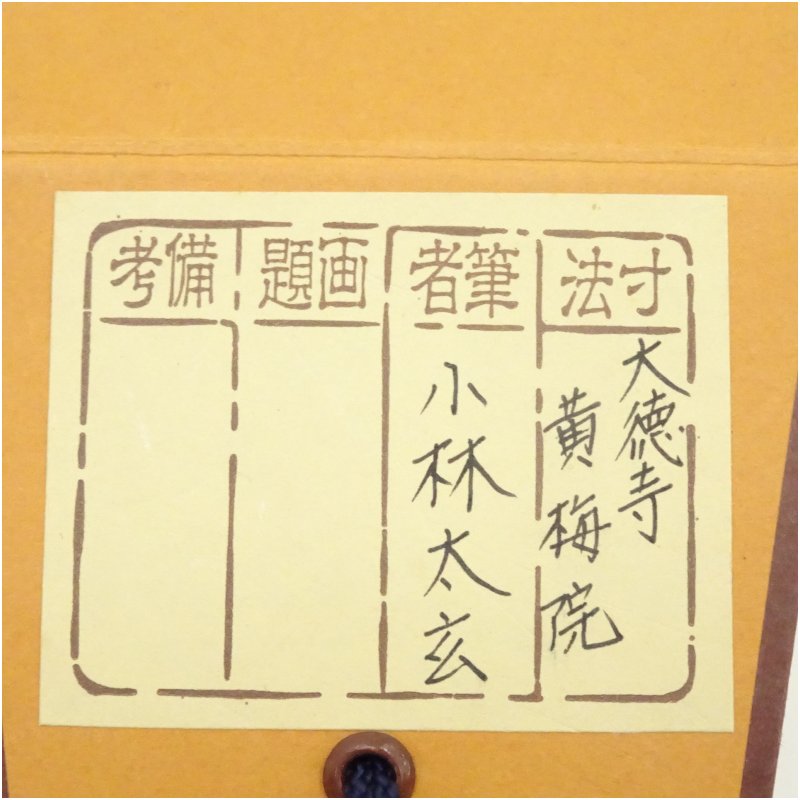 寸法
大徳寺
黄梅院
筆者
小林太玄
画題
備考